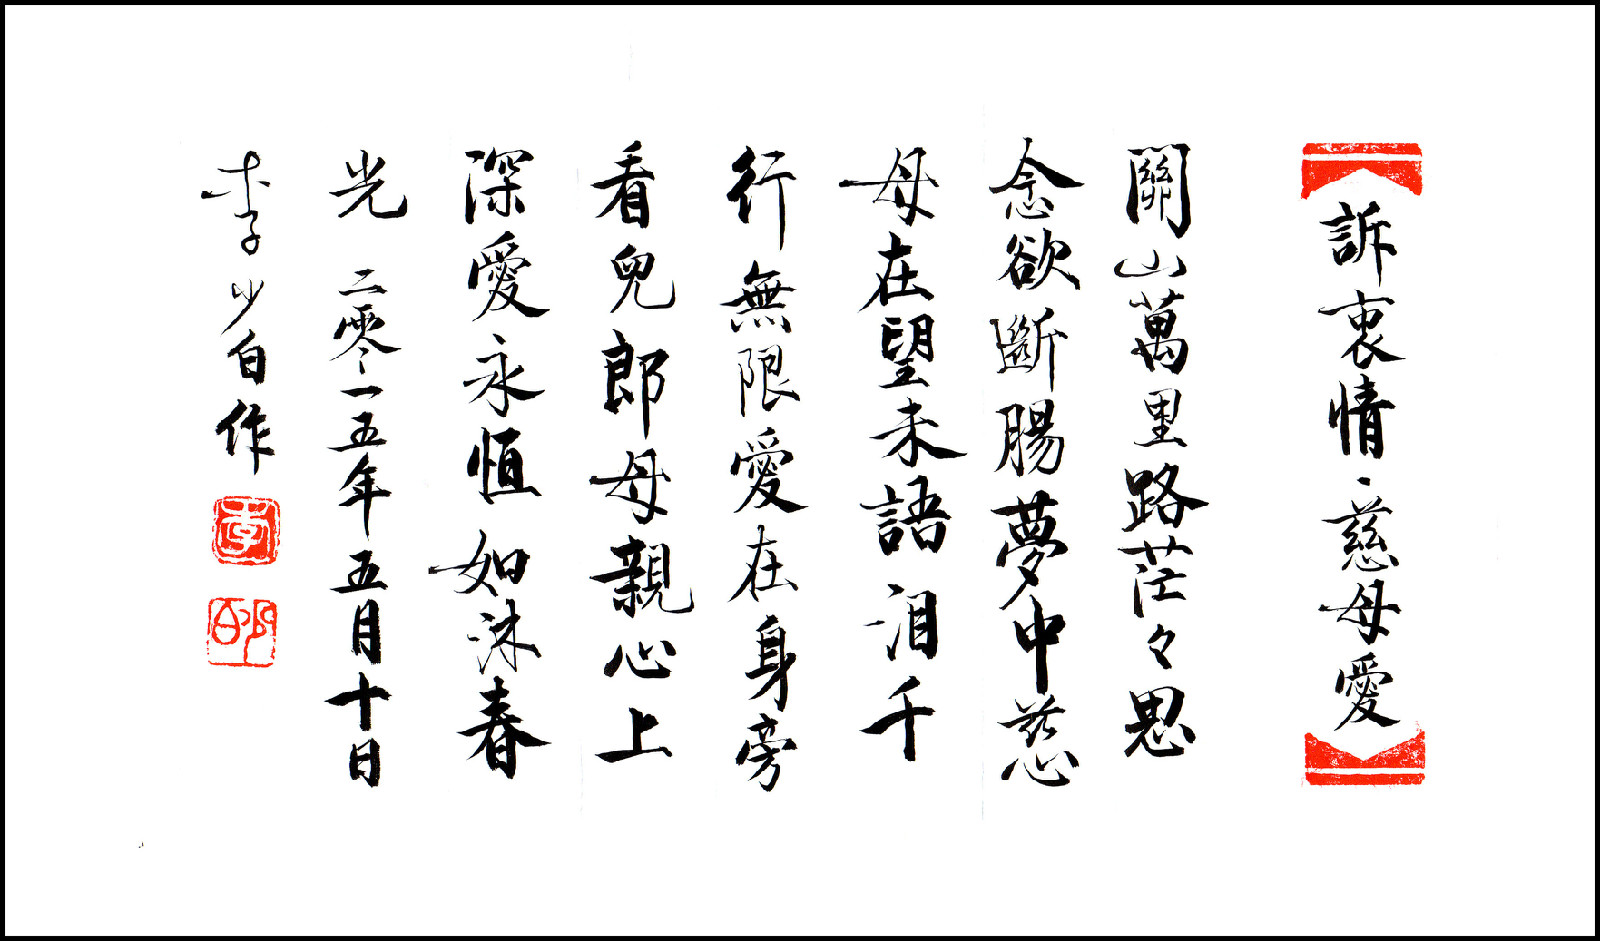 訴衷情、慈母愛
關山萬里路茫々思
念欲斷腸夢中慈
母在望未語淚千
行無限愛在身旁
看兒郎母親心上
深愛永恒如沐春
光 二零一五年五月十日
李少白作
李